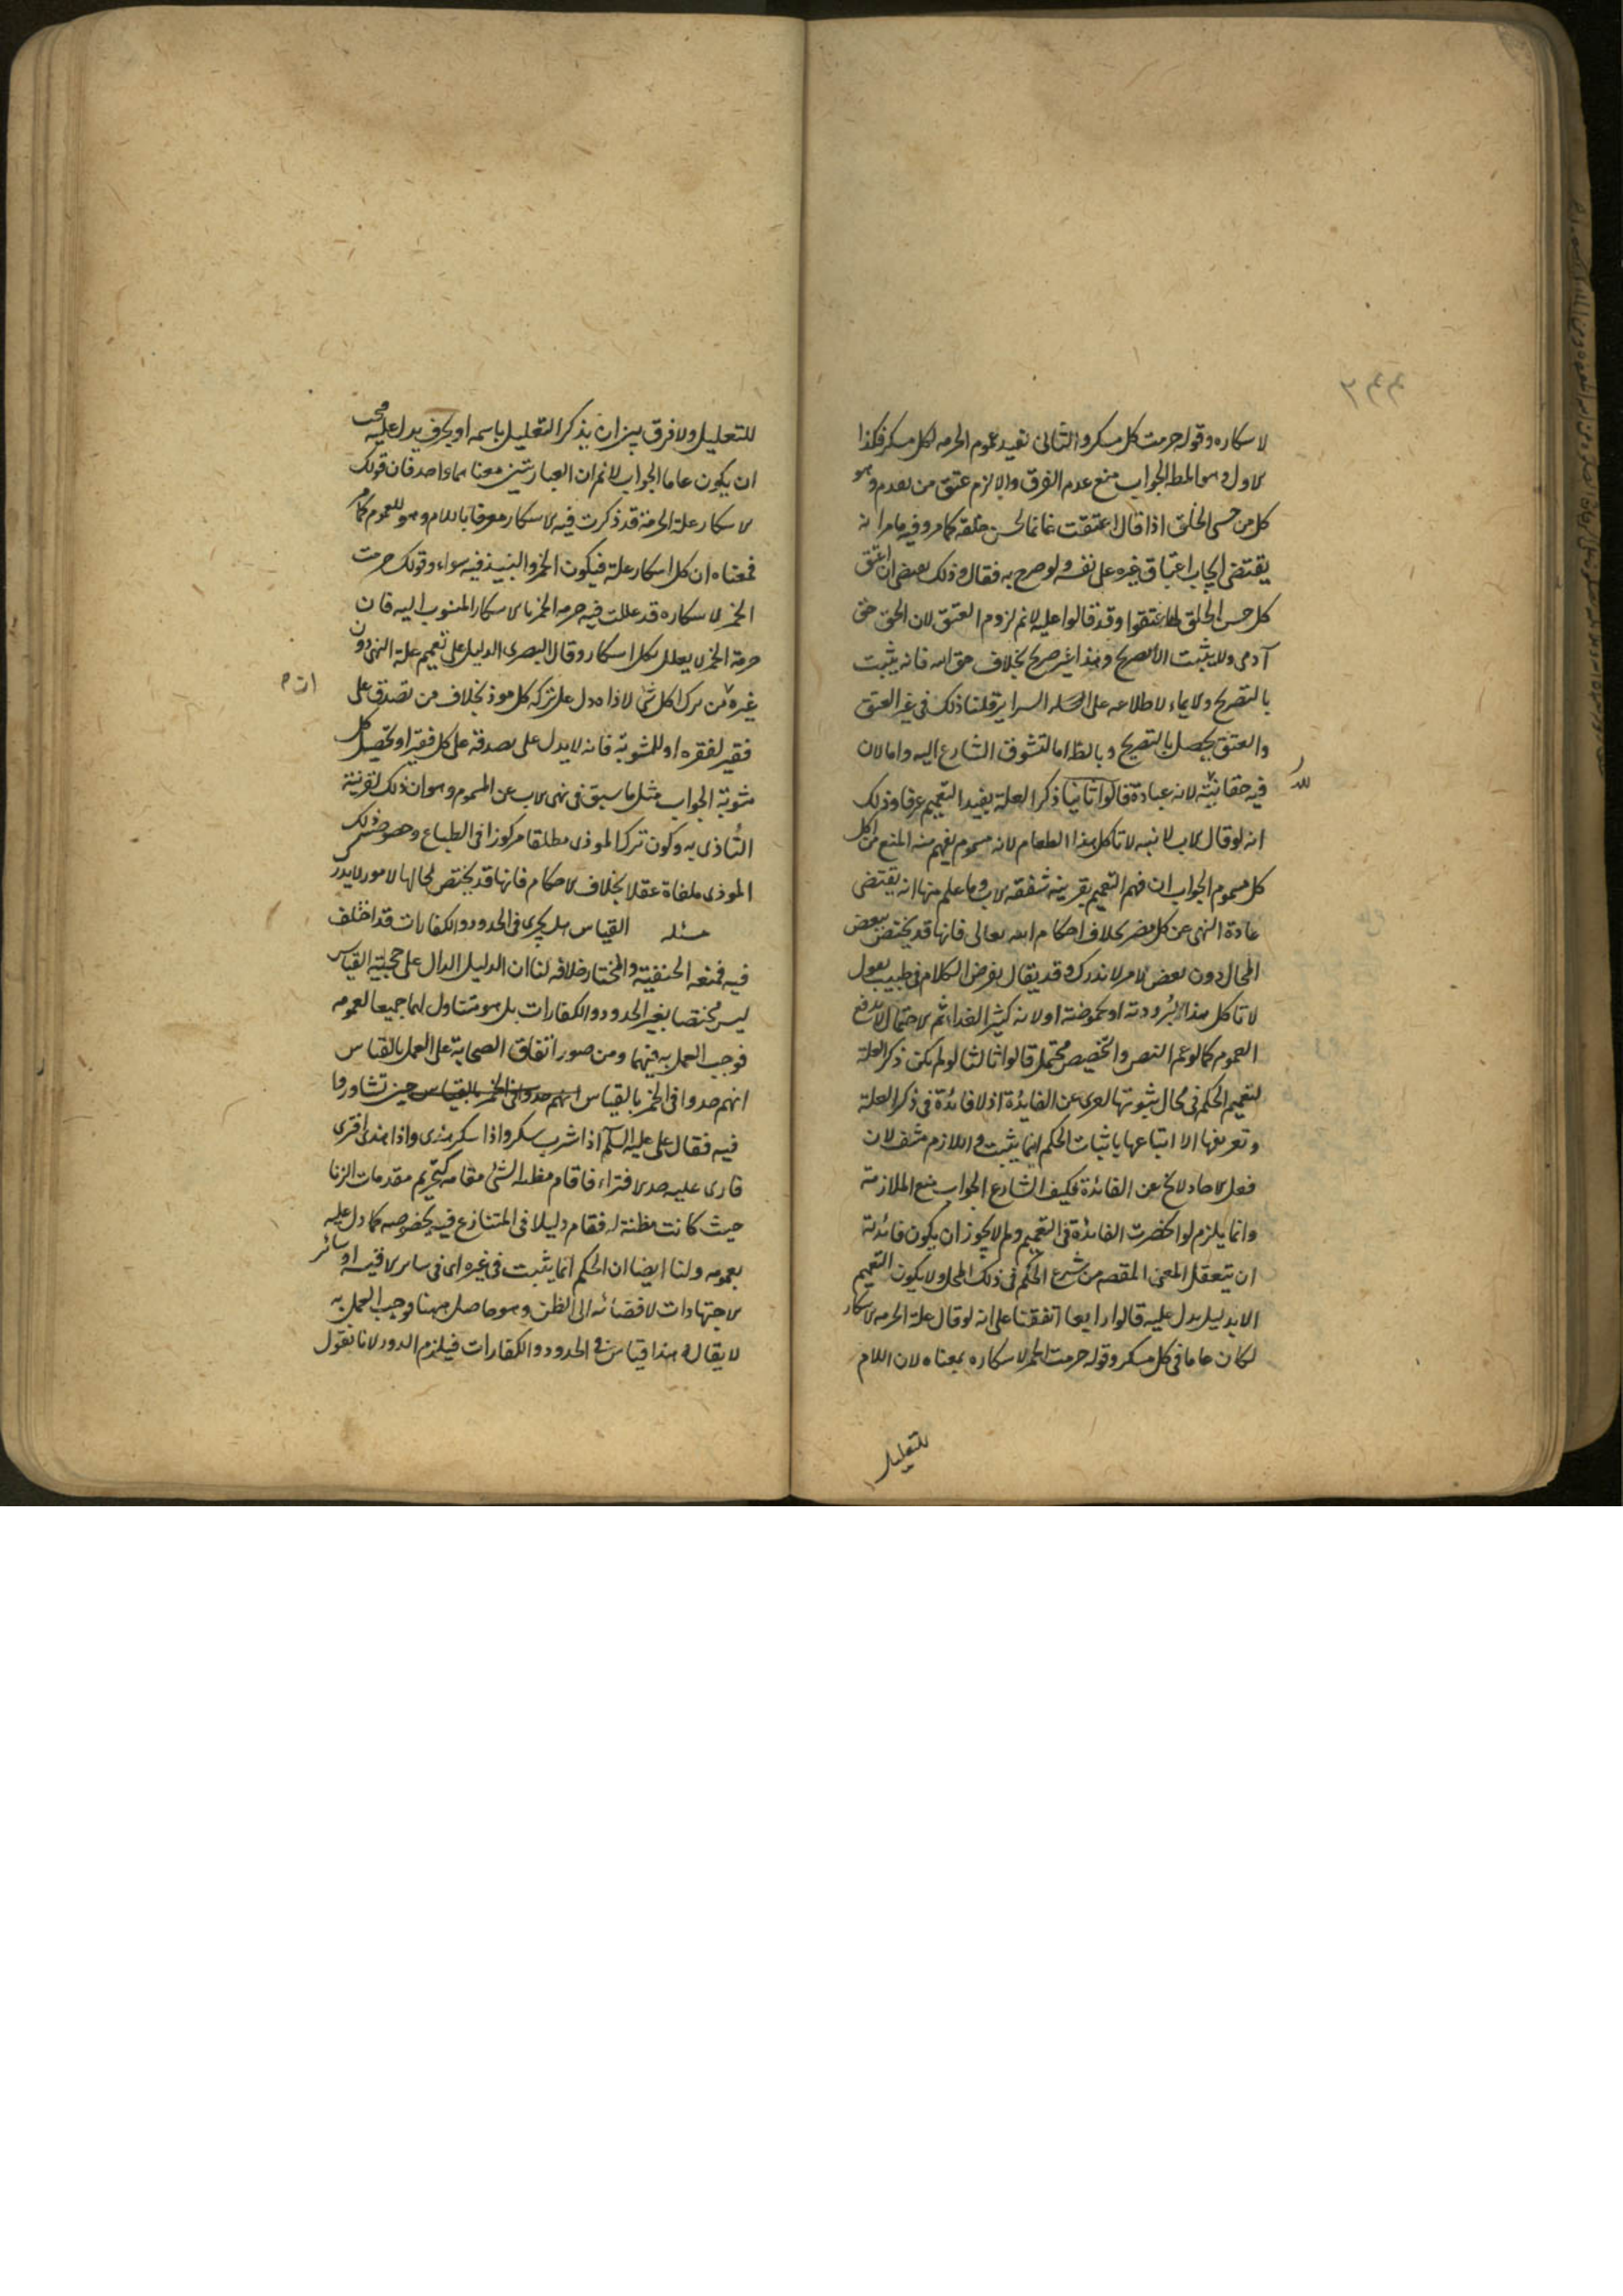 لاسكاره وقوله حرمت كل مسكر والثانى تفيد عموم الحرمه لكل مسكر فكذا
الاول وهو المط الجواب منع عدم الفرق والا لزم عتق من تقدم وهو
كل من حسن الخلق اذا قال اعتقت غانما لحسن خلقه كما مر وفيه مامر انه
يقتضى ايجاب اعتاق غيره على نفسه ولو صرح به فقال وذلك يقتضى ان اعتق
كل حسن الخلق لما عتقوا وقد قالوا عليه لانم لزوم العتق لان الحق حق
آدمى ولا يثبت الا بصريح وهذا غير صريح بخلاف حق الله فانه يثبت
بالتصريح والايماء لاطلاعه على السراير قلنا ذلك فى غير العتق
والعتق يحصل بالتصريح وبالظ اما لتشوف الشارع اليه واما لان
فيه حقا لله لانه عبادة قالوا ثانيا ذكر العلة يفيد التعميم عرفا وذلك
انه لو قال الاب لابنه لا تاكل هذا الطعام لانه مسموم يفهم منه المنع من اكل
كل مسموم الجواب ان فهم التعميم بقرينه شفقه الاب وما علم منها انه يقتضى
عادة النهى عن كل مضر بخلاف احكام الله تعالى فانها قد يختص ببعض
المحال دون بعض لامر لا ندرك وقد يقال يفرض الكلام فى طبيب يقول
لا تاكل هذا لبرودته او لحموضته او لانه كثير الغذا ثم الاحتمال لا يدفع
العموم كما لو عم النص والتخصيص محتمل قالوا ثالثا لو لم يكن ذكر العلة
لتعميم الحكم فى محال ثبوتها لعرى عن الفايدة اذ لا فايدة فى ذكر العلة
وتعريفها الا اتباعها باثبات الحكم اينما يثبت واللازم منتف لان
فعل الاحاد لا يخ عن الفائدة فكيف الشارع الجواب منع الملازمة
وانما يلزم لو انحصرت الفائدة فى التعميم ولم لا يجوز ان يكون فائدته
ان يتعقل المعنى المقصه من شرع الحكم فى ذلك المحل ولا يكون التعميم
الا بدليل يدل عليه قالوا رابعا اتفقنا على انه لو قال علة الحرمه الاسكار
لكان عاما فى كل مسكر وقوله حرمت الخمر لاسكاره بمعناه لان اللام
للتعليل
للتعليل ولا فرق بين ان يذكر التعليل باسمه او بحرف يدل عليه فيجب
ان يكون عاما الجواب لانم ان العبارتين معناهما واحد فان قولك
الاسكار علة الحرمة قد ذكرت فيه الاسكار معرفا باللام وهو للعموم كما مر
فمعناه ان كل اسكار علة فيكون الخمر والنبيذ فيه سواء وقولك حرمت
الخمر لاسكاره قد عللت فيه حرمه الخمر بالاسكار المنسوب اليه فان
حرمة الخمر لا يعلل بكل اسكار وقال البصرى الدليل على تعميم علة النهى دون
غيره ان من ترك اكل شئ لاذاه دل على تركه كل موذ بخلاف من تصدق على
فقير لفقره او للمثوبة فانه لا يدل على تصدقه على كل فقير او تحصيل كل
مثوبة الجواب مثل ما سبق فى نهى الاب عن المسموم وهو ان ذلك لقرينة
التاذى به وكون ترك الموذى مطلقا مركوزا فى الطباع وخصوص ذلك
الموذى ملغاة عقلا بخلاف الاحكام فانها قد يختص لمحالها لامور لا يدرك
مسئله القياس هل يجرى فى الحدود والكفارات قد اختلف
فيه فمنعه الحنفية والمختار خلافه لنا ان الدليل الدال على حجية القياس
ليس مختصا بغير الحدود والكفارات بل هو متناول لهما جميعا لعمومه
فوجب العمل به فيهما ومن صور اتفاق الصحابة على العمل بالقياس
انهم حدوا فى الخمر بالقياس انهم حدوا فى الخمر بالقياس حين تشاوروا
فيه فقال على عليه السلم اذا شرب سكر واذا سكر هذى واذا هذى افترى
فارى عليه حد الافتراء فاقام مظنه الشئ مقامه كتحريم مقدمات الزنا
حيث كانت مظنة له فقام دليلا فى المتنازع فيه بخصوصه كما دل عليه
بعمومه ولنا ايضا ان الحكم انما يثبت فى غيره اى فى ساير الاقيسه او سائر
الاجتهادات لافضائه الى الظن وهو حاصل هيهنا فوجب العمل به
لا يقال هذا قياس فى الحدود والكفارات فيلزم الدور لانا نقول